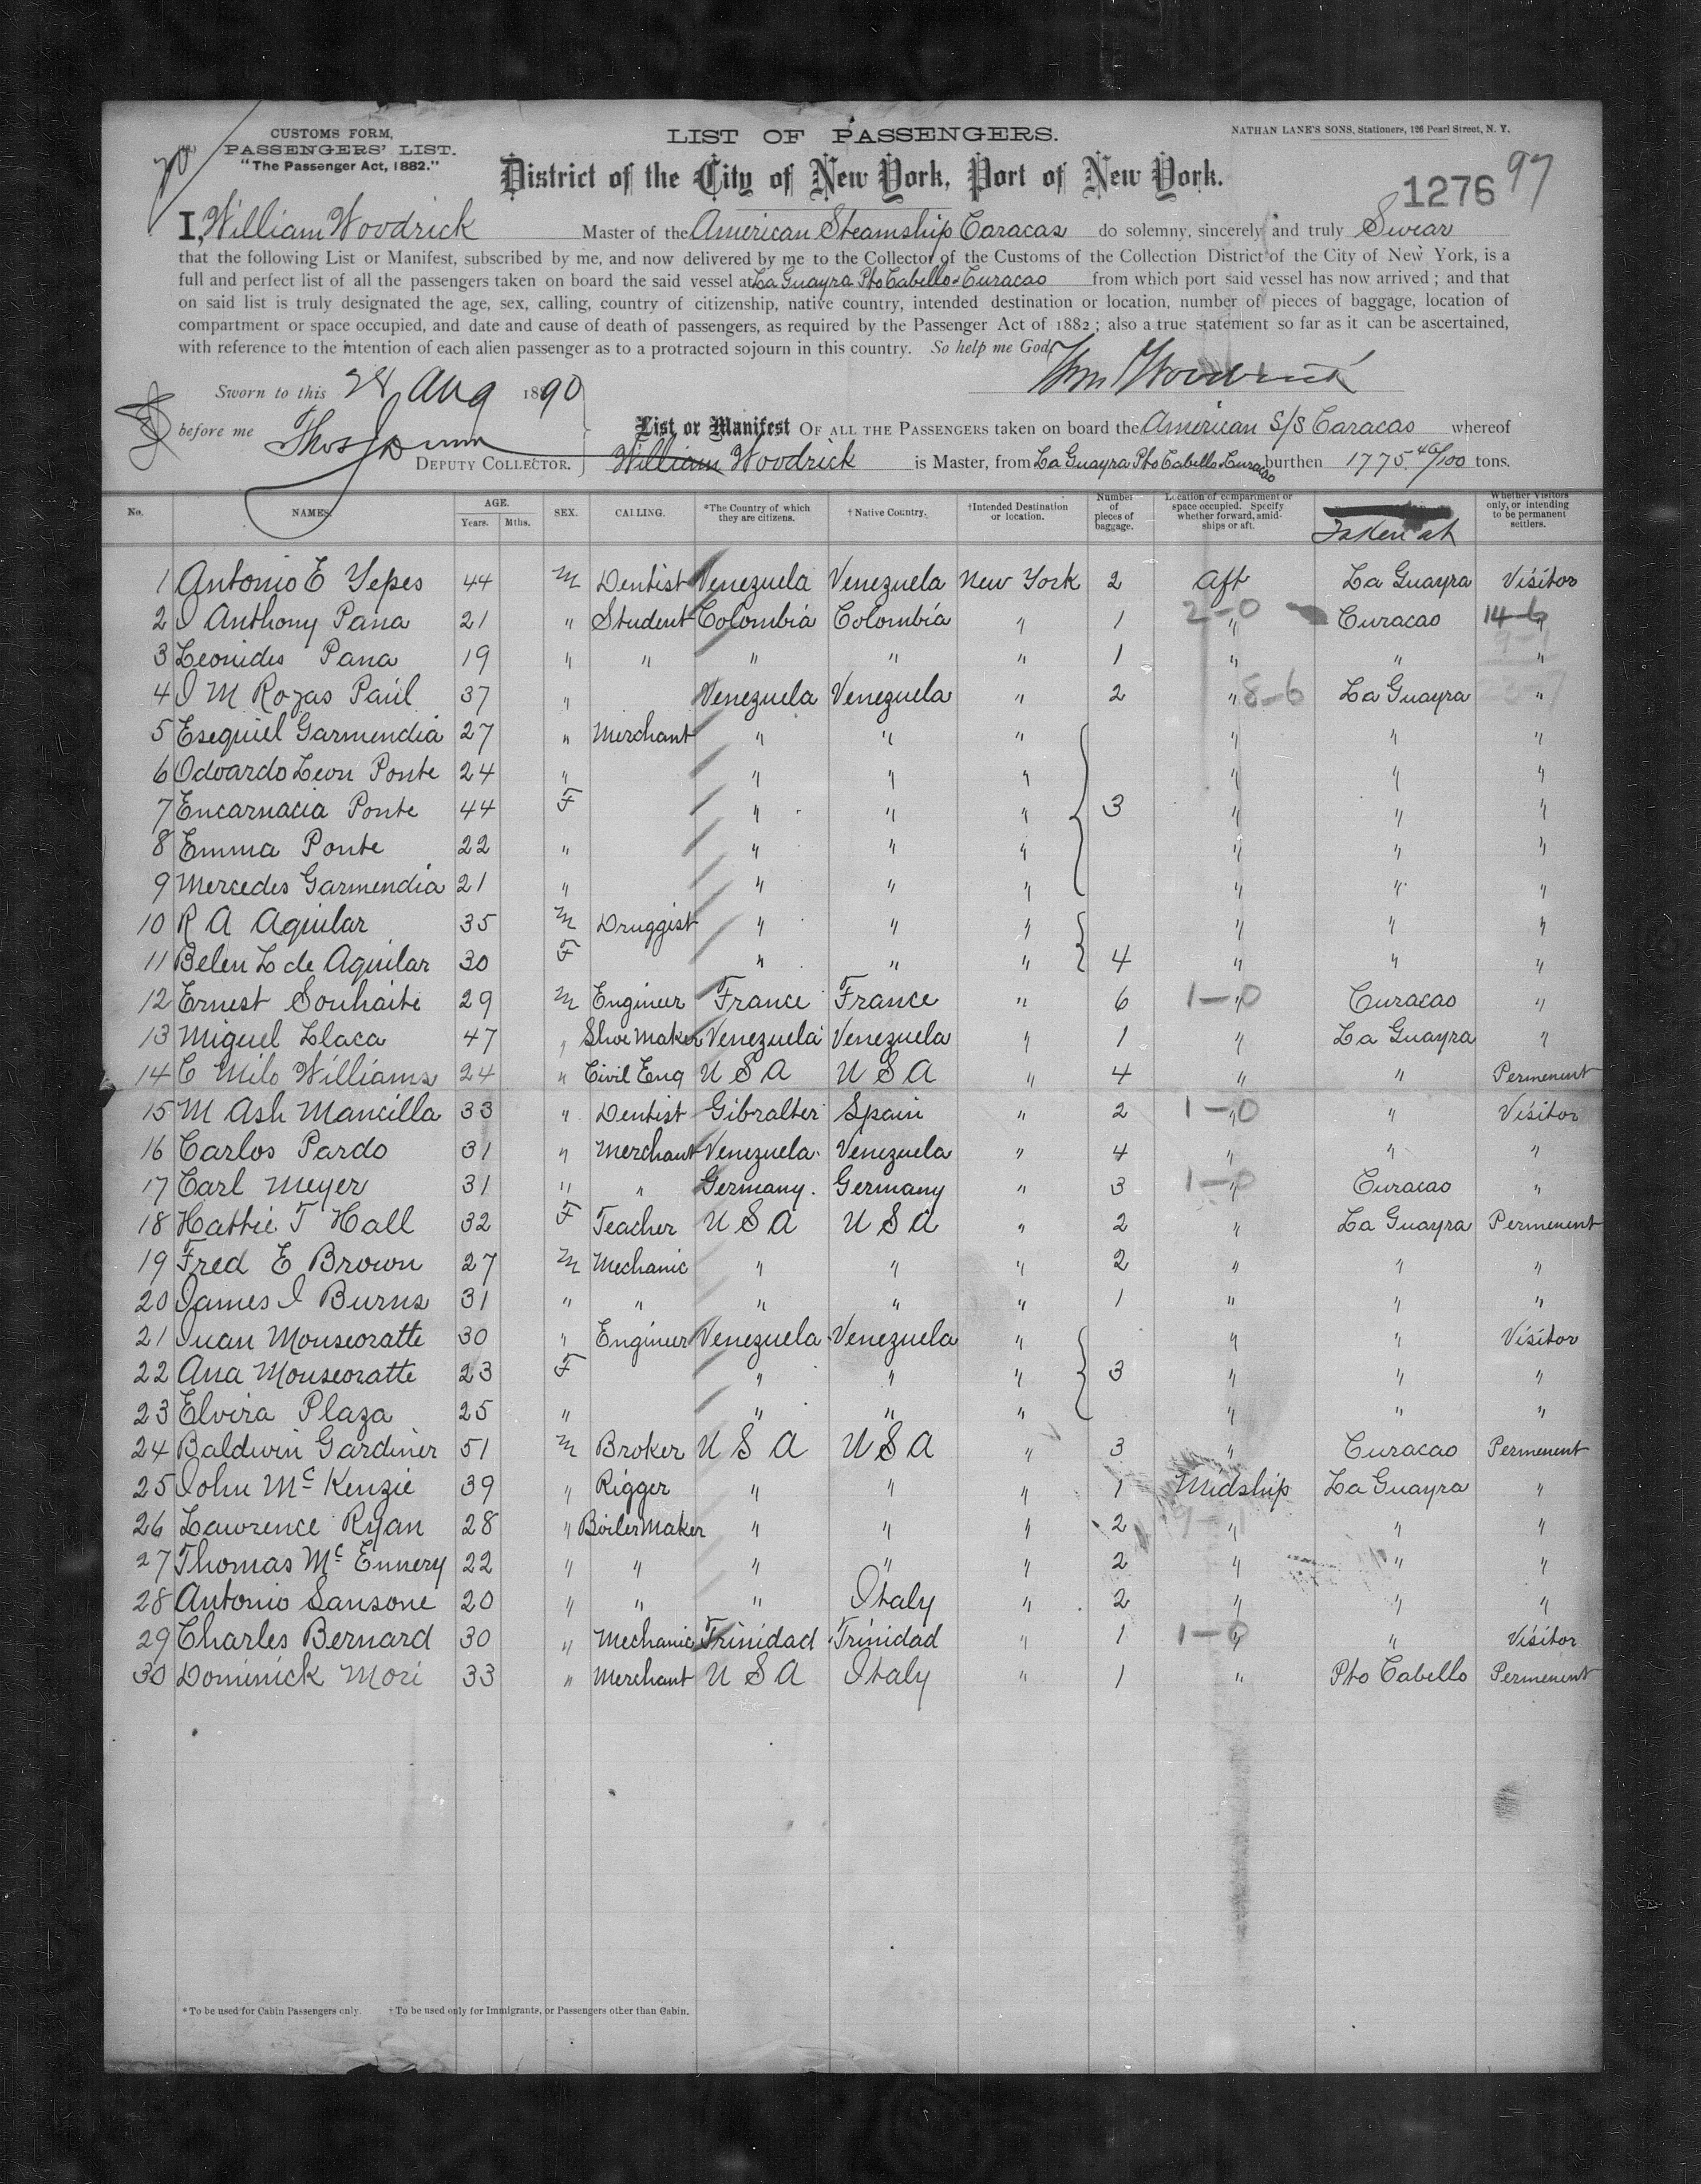 CUSTOMS FORM,
PASSENGERS' LIST.
"The Passenger Act, 1882."
LIST OF PASSENGERS.
NATHAN LANE'S SONS, Stationers, 126 Pearl Street, N. Y.
District of the City of New York, Port of New York.
1276 97
I, William Woodrick Master of the American Steamship Caracas do solemny, sincerely and truly Swear
that the following List or Manifest, subscribed by me, and now delivered by me to the Collector of the Customs of the Collection District of the City of New York, is a
full and perfect list of all the passengers taken on board the said vessel at La Guayra Pto Cabello & Curacao from which port said vessel has now arrived ; and that
on said list is truly designated the age, sex, calling, country of citizenship, native country, intended destination or location, number of pieces of baggage, location of
compartment or space occupied, and date and cause of death of passengers, as required by the Passenger Act of 1882 ; also a true statement so far as it can be ascertained,
with reference to the intention of each alien passenger as to a protracted sojourn in this country. So help me God.
Wm Woodrick
Sworn to this 28 Aug 1890
before me Thos J Dunn
DEPUTY COLLECTOR.
List or Manifest OF ALL THE PASSENGERS taken on board the American S/S Caracas whereof
William Woodrick is Master, from La Guayra Pto Cabello Curacao burthen 1775 46/100 tons.
No. NAMES. AGE. Years. Mths. SEX. CALLING. *The Country of which they are citizens. † Native Country. †Intended Destination or location. Number of pieces of baggage. Location of compartment or space occupied. Specify whether forward, amidships or aft. Taken at Whether Visitors only, or intending to be permanent settlers.
1 Antonio E Yepes 44 M Dentist Venezuela Venezuela New York 2 Aft La Guayra Visitor
2 J Anthony Pana 21 " Student Colombia Colombia " 1 2-0 " Curacao 14-6 "
3 Leonides Pana 19 " " " " " 1 " " "
4 J M Rozas Paúl 37 " Venezuela Venezuela " 2 " 8-6 La Guayra "
5 Esequiel Garmendia 27 " Merchant " " " " " "
6 Odoardo Leon Ponte 24 " " " " " " "
7 Encarnacia Ponte 44 F " " " 3 " " "
8 Emma Ponte 22 " " " " " " "
9 Mercedes Garmendia 21 " " " " " " "
10 R A Aguilar 35 M Druggist " " " " " "
11 Belen L de Aguilar 30 F " " " 4 " " "
12 Ernest Souhaite 29 M Engineer France France " 6 1-0 " Curacao "
13 Miguel Llaca 47 " Shoe Maker Venezuela Venezuela " 1 " La Guayra "
14 C Milo Williams 24 " Civil Eng U S A U S A " 4 " " Permenent
15 M Ash Mancilla 33 " Dentist Gibralter Spain " 2 1-0 " " Visitor
16 Carlos Pardo 31 " Merchant Venezuela Venezuela " 4 " " "
17 Carl Meyer 31 " " Germany. Germany " 3 1-0 " Curacao "
18 Hattie T Hall 32 F Teacher U S A U S A " 2 " La Guayra Permenent
19 Fred E Brown 27 M Mechanic " " " 2 " " "
20 James J Burns 31 " " " " " 1 " " "
21 Juan Monseoratte 30 " Engineer Venezuela Venezuela " " " Visitor
22 Ana Monseoratte 23 F " " " 3 " " "
23 Elvira Plaza 25 " " " " " " "
24 Baldwin Gardiner 51 M Broker U S A U S A " 3 " Curacao Permenent
25 John Mc Kenzie 39 " Rigger " " " 1 Midship La Guayra "
26 Lawrence Ryan 28 " Boiler Maker " " " 2 " " "
27 Thomas Mc Ennery 22 " " " " " 2 " " "
28 Antonio Sansone 20 " " " Italy " 2 " " "
29 Charles Bernard 30 " Mechanic Trinidad Trinidad " 1 1-0 " " Visitor
30 Dominick Mori 33 " Merchant U S A Italy " 1 " Pto Cabello Permenent
*To be used for Cabin Passengers only. †To be used only for Immigrants, or Passengers other than Cabin.